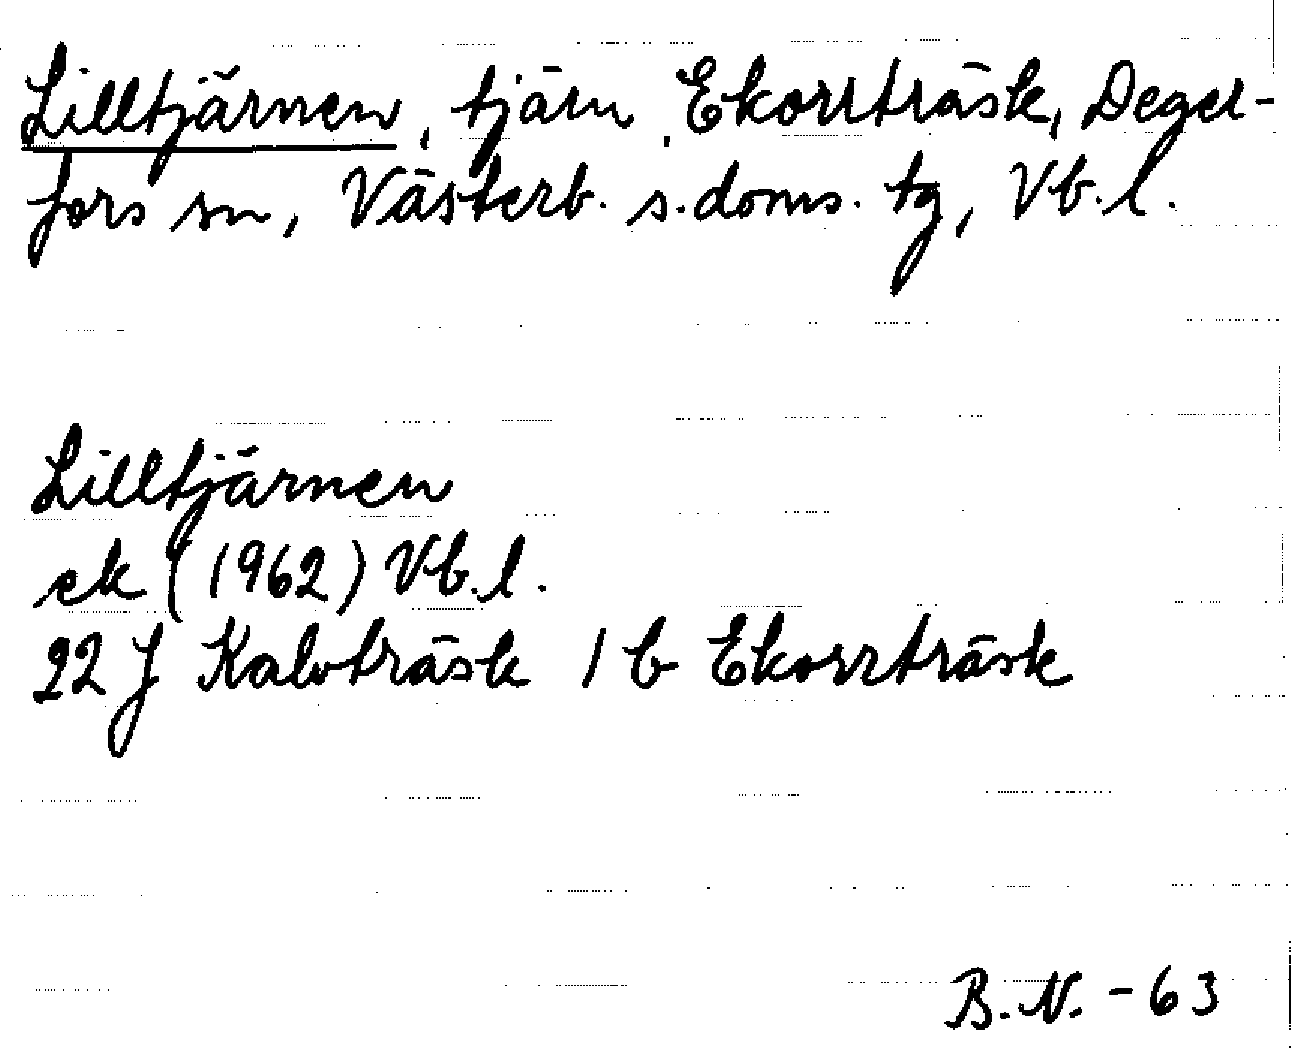 Lilltjärnen, tjärn, Ekorrträsk, Degerfors sn, Västerb. s. doms. tg, Vb. l.
Lilltjärnen
ek (1962) Vb. l.
22 J Kalvträsk 1 b Ekorrträsk
B. N. - 63